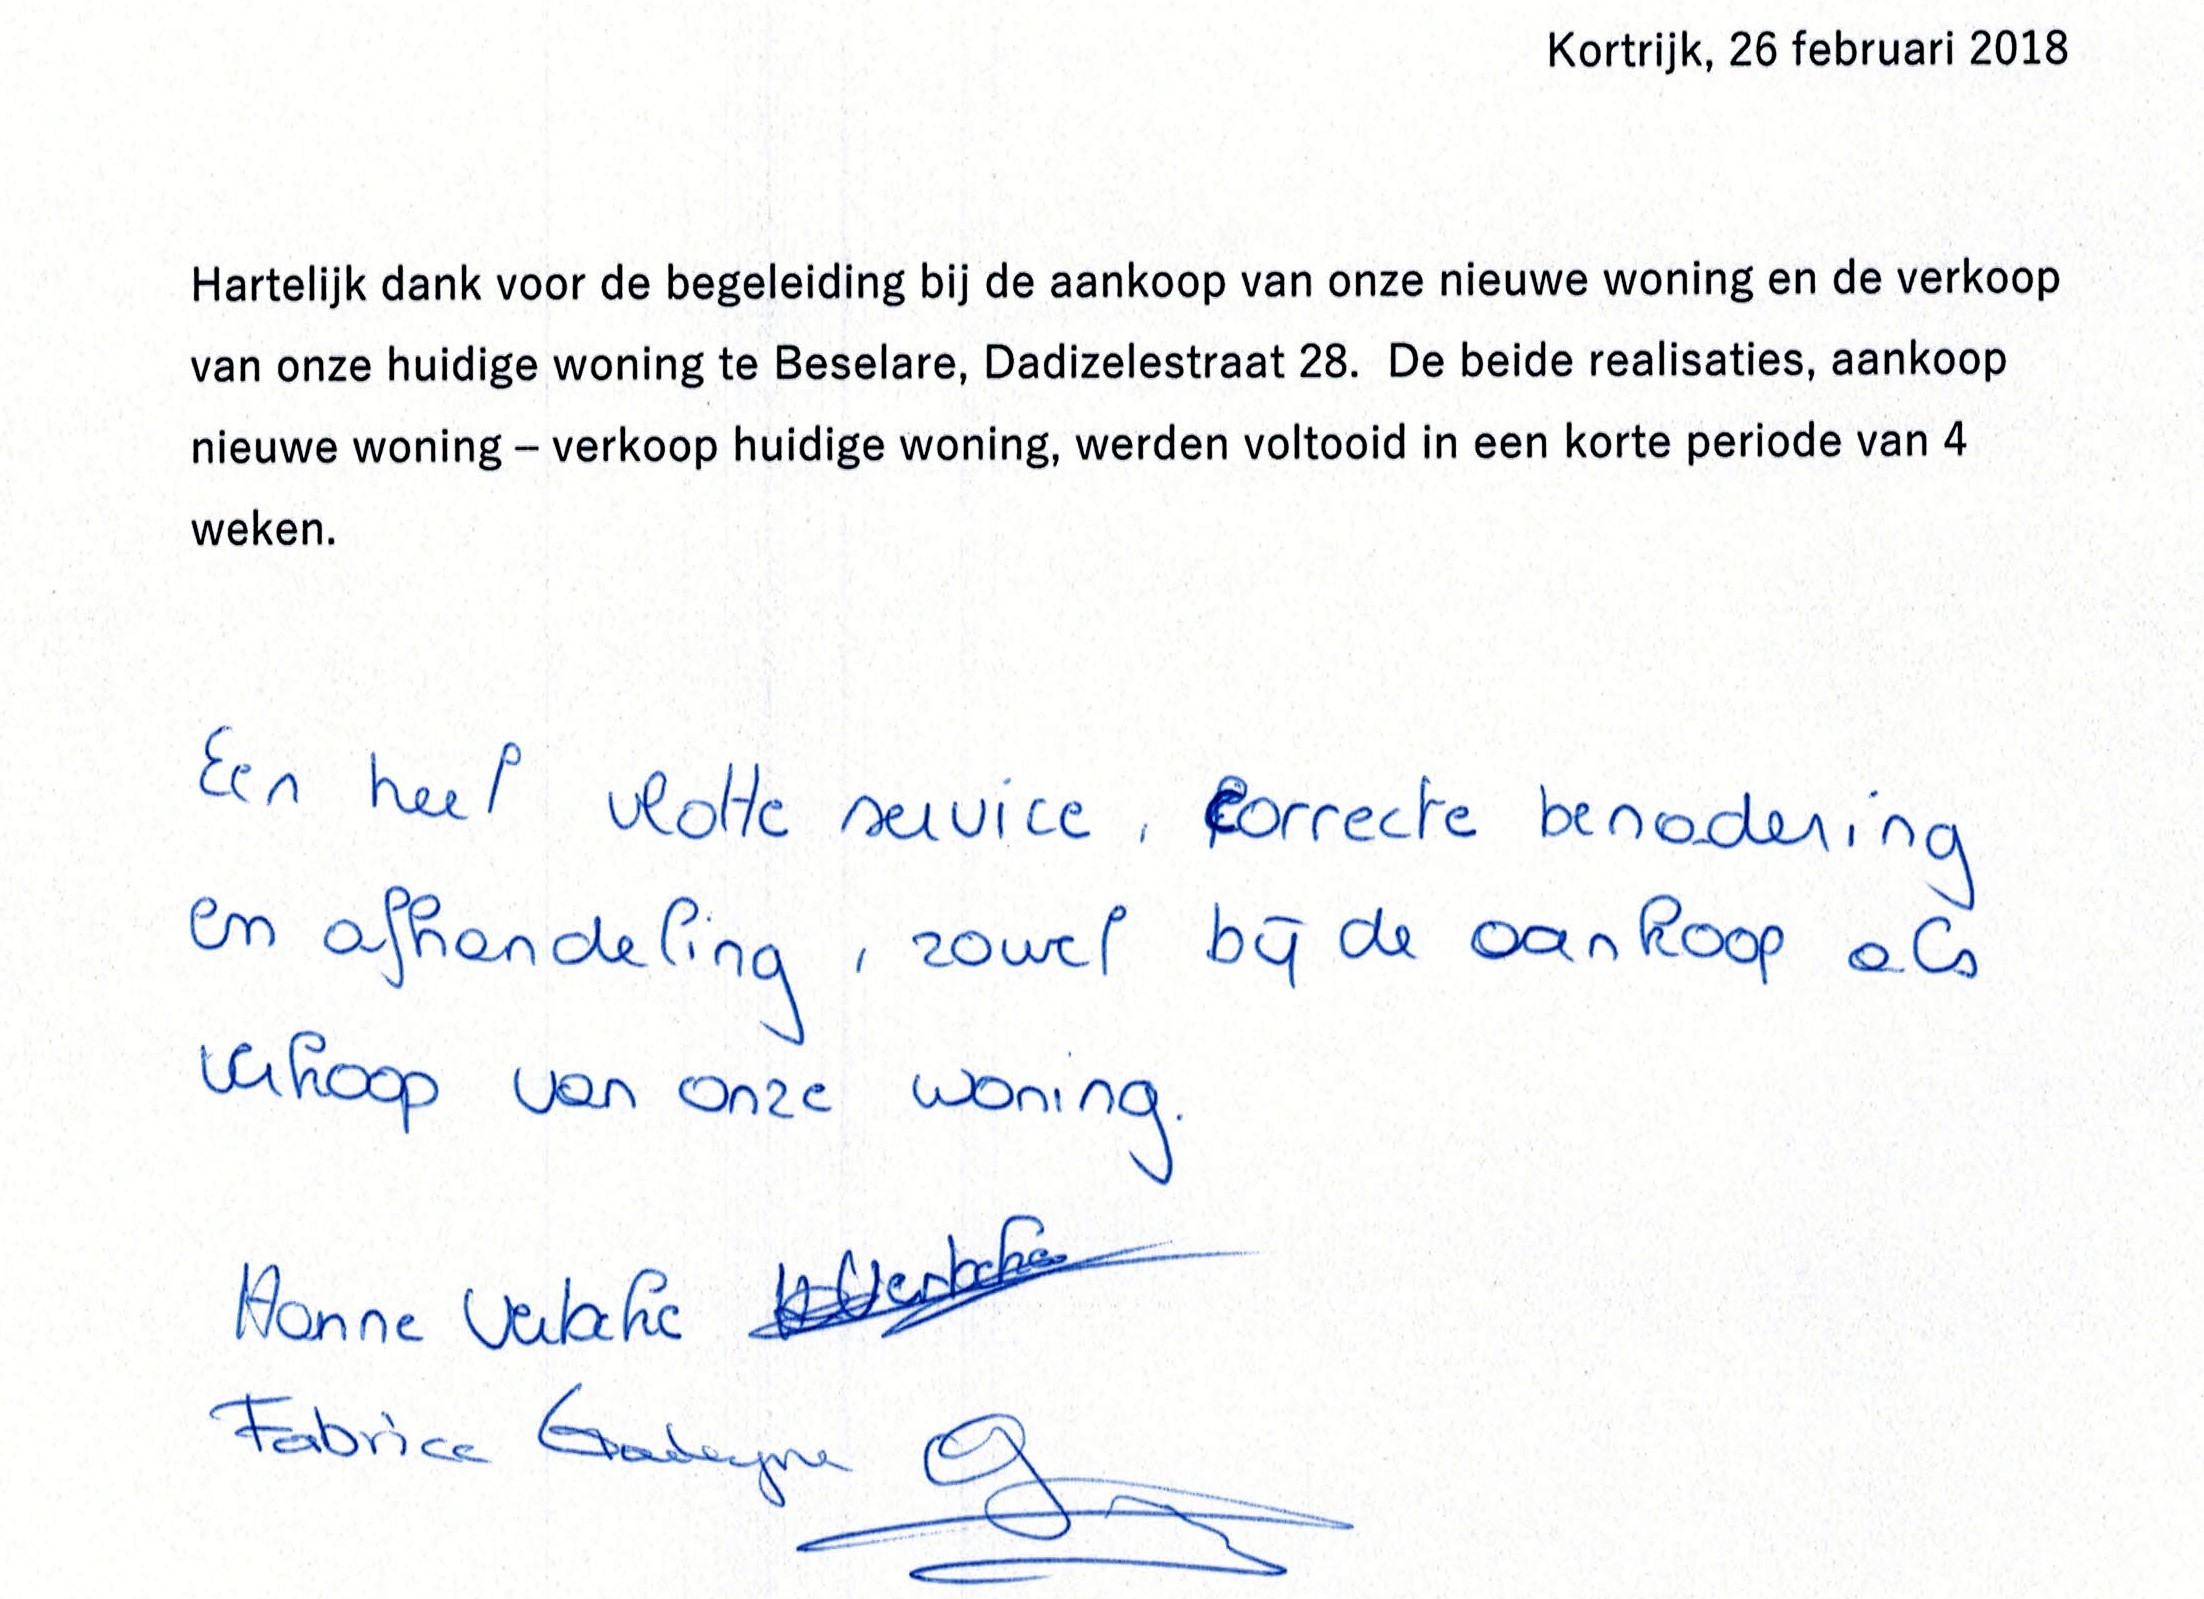 Kortrijk, 26 februari 2018
Hartelijk dank voor de begeleiding bij de aankoop van onze nieuwe woning en de verkoop
van onze huidige woning te Beselare, Dadizelestraat 28. De beide realisaties, aankoop
nieuwe woning – verkoop huidige woning, werden voltooid in een korte periode van 4
weken.
Een heel vlotte service, correcte benadering
en afhandeling, zowel bij de aankoop als
verkoop van onze woning.
Hanne
Fabrice